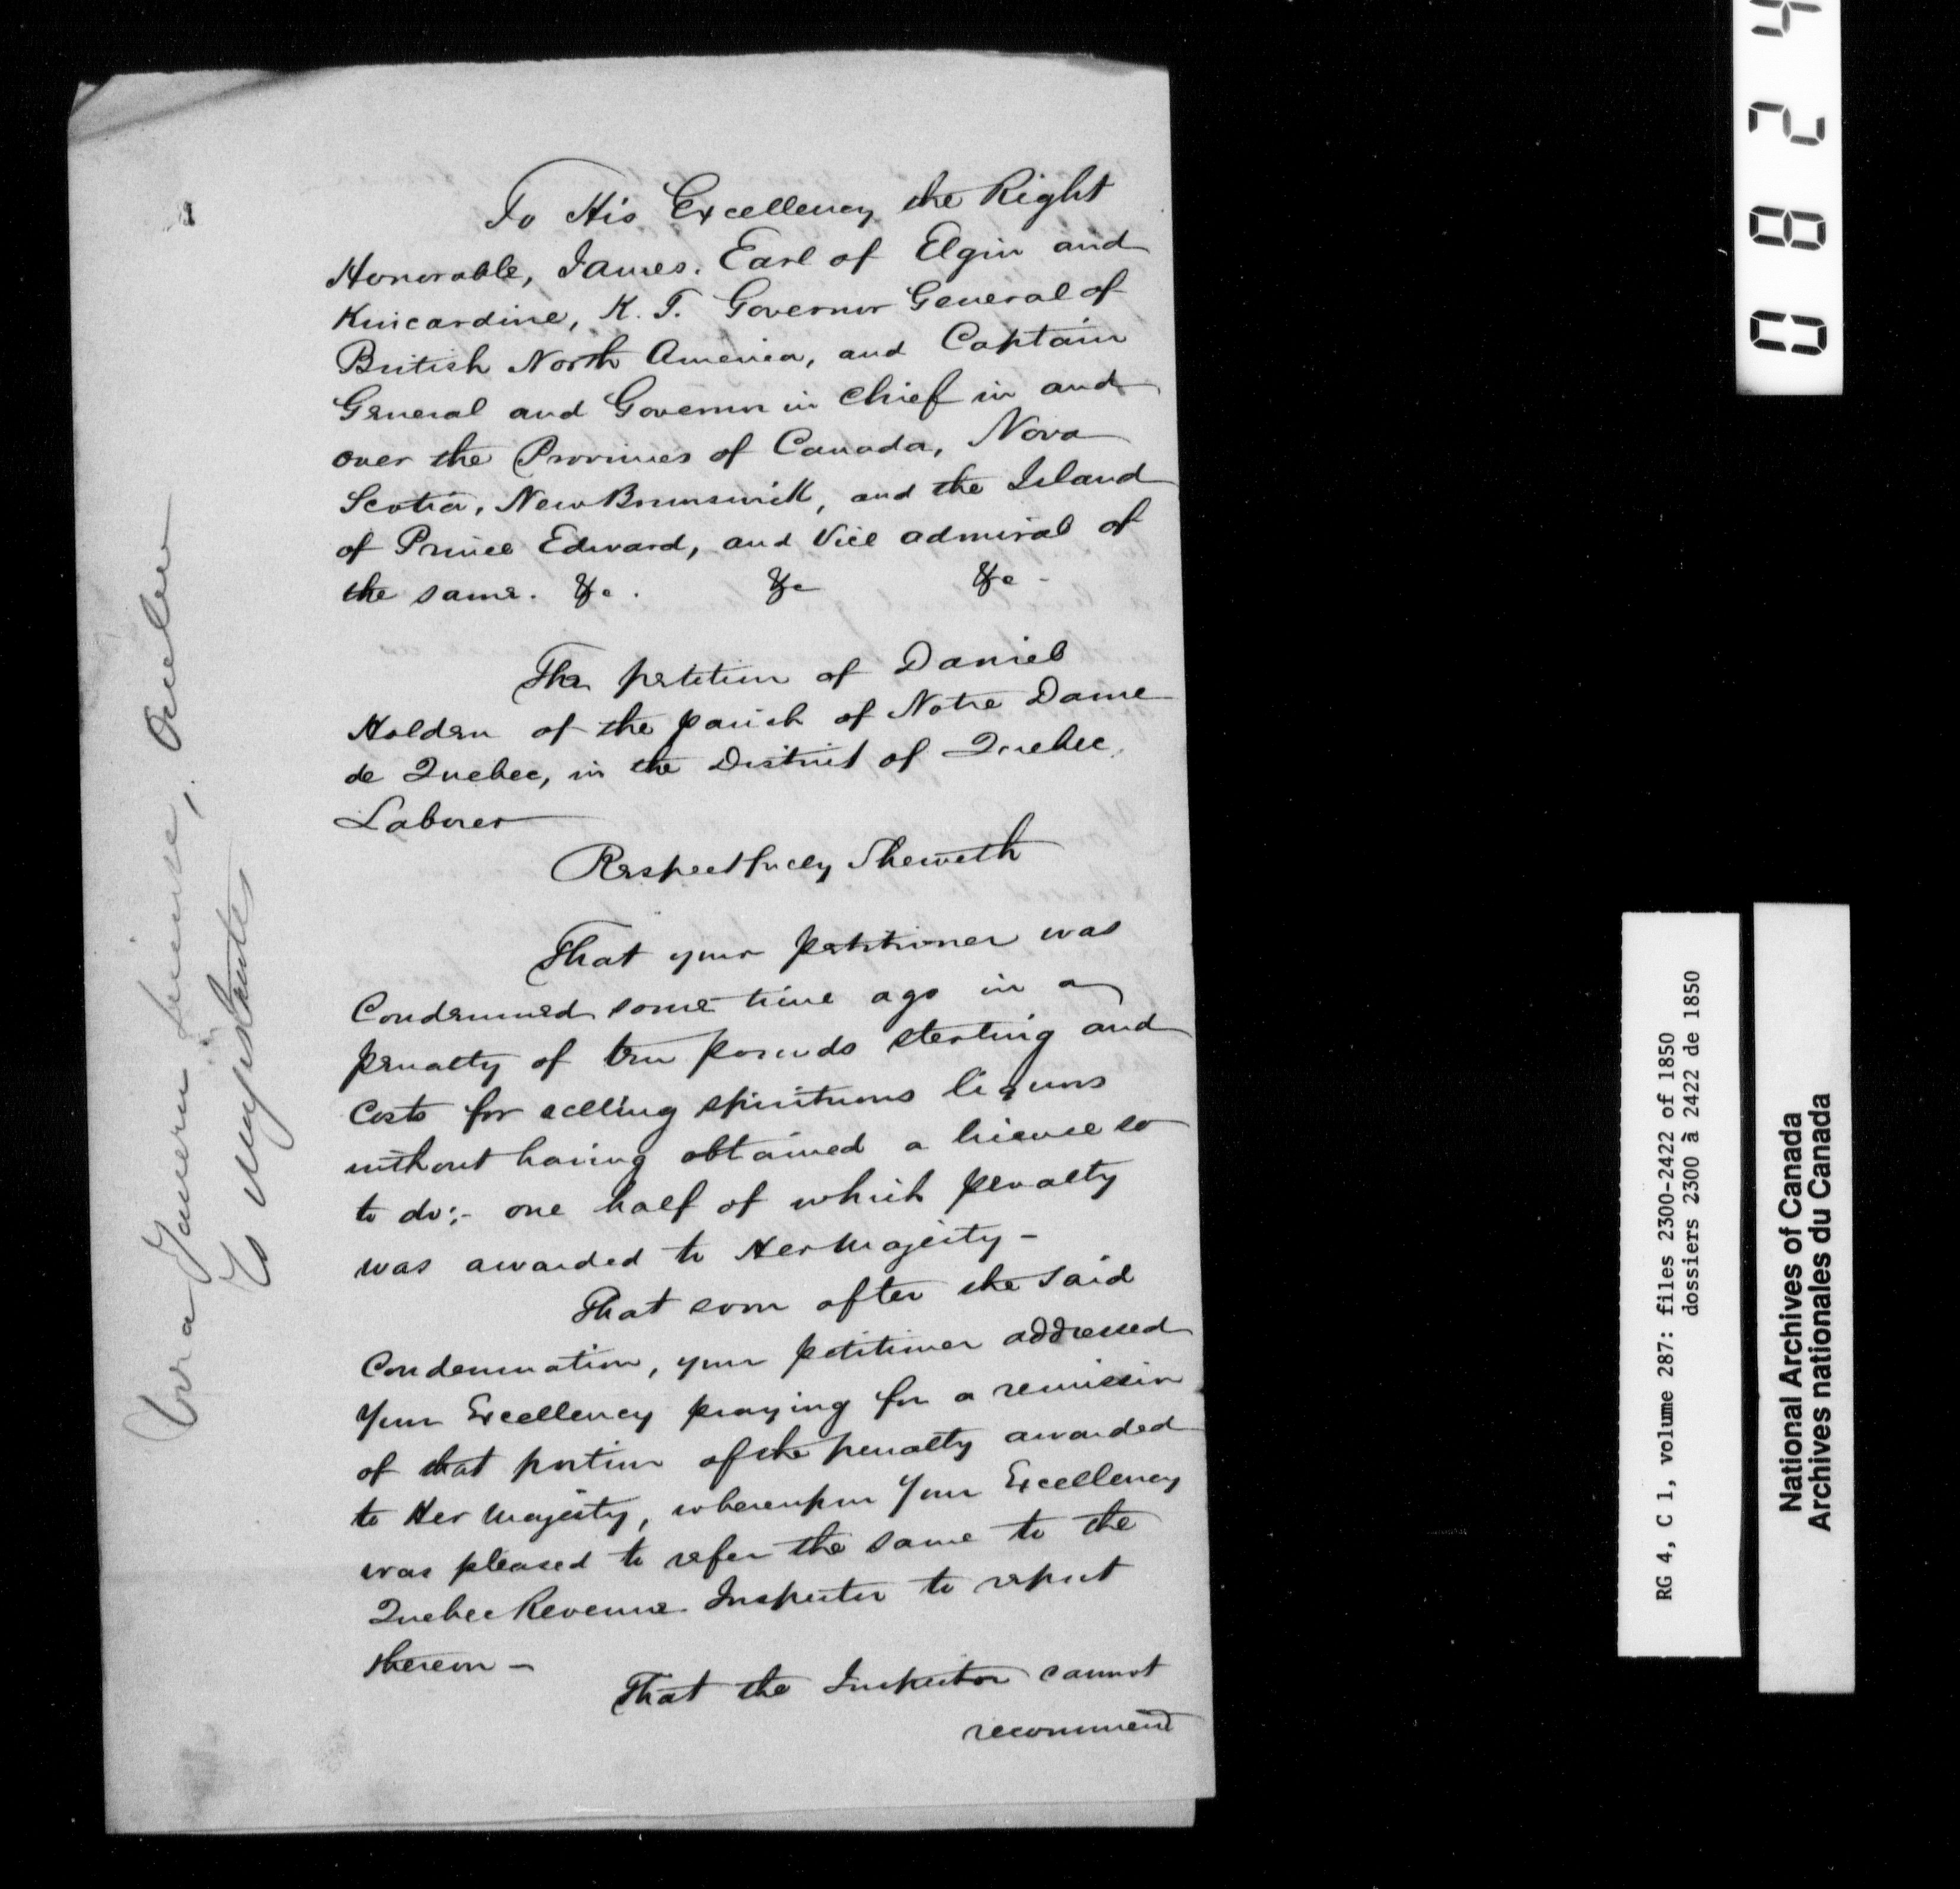 To His Excellency the Right
Honorable, James. Earl of Elgin and
Kincardine, K. T. Governor General of
British North America, and Captain
General and Governor in Chief in and
over the Provinces of Canada, Nova
Scotia, New Brunswick, and the Island
of Prince Edward, and Vice admiral of
the same. &c. &c &c -
The petition of Daniel
Holden of the parish of Notre Dame
de Quebec, in the District of Quebec,
Laborer
Respectfully Sheweth
That your petitioner was
Condemned some time ago in a
penalty of ten pounds sterling and
Costs for selling spirituous liquors
without having obtained a license so
to do;- one half of which penalty
was awarded to Her Majesty -
That soon after the said
Condemnation, your petitioner addressed
Your Excellency praying for a remission
of that portion of the penalty awarded
to Her Majesty, whereupon Your Excellency
was pleased to refer the same to the
Quebec Revenue Inspector to report
thereon -
That the Inspector cannot
recommend
for a Tavern License, Quebec
To Magistrates
0824
RG 4, C 1, volume 287: files 2300-2422 of 1850
dossiers 2300 à 2422 de 1850
National Archives of Canada
Archives nationales du Canada